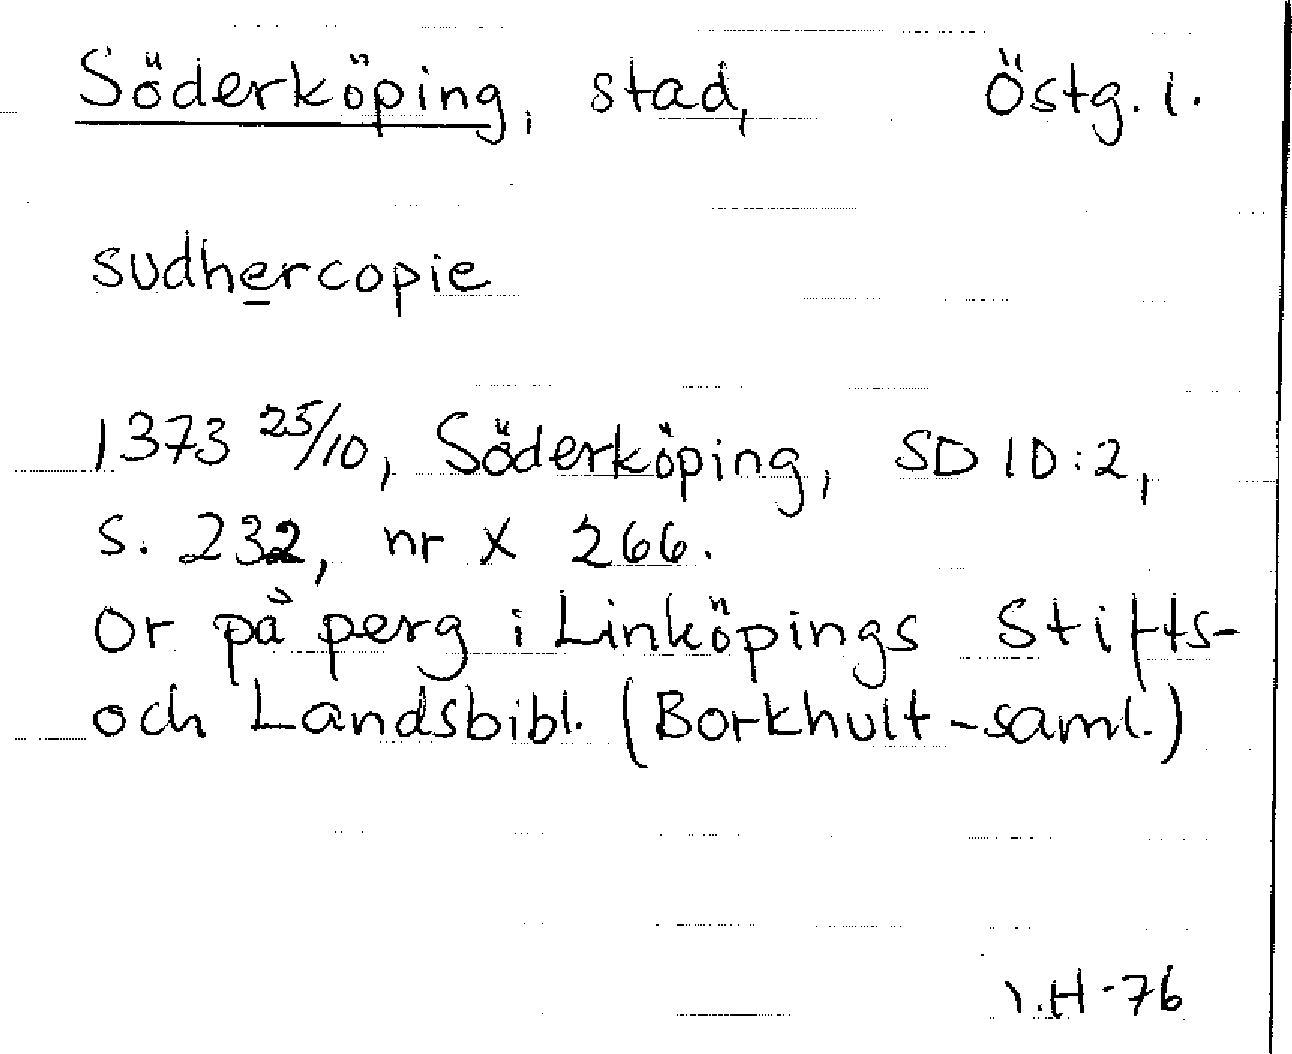 Söderköping, stad, Östg. l.
sudhercopie
1373 25/10, Söderköping, SD 10:2,
s. 232, nr X 266.
Or på perg i Linköpings Stifts-
och Landsbibl. (Borkhult-saml.)
I.H-76